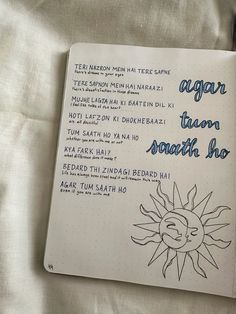 TERI NAZRON MEIN HAI TERE SAPNE
there's dreams in your eyes
TERE SAPNON MEIN HAI NARAAZI
there's dissatisfaction in those dreams
MUJHE LAGTA HAI KI BAATEIN DIL KI
I feel like talks of the heart
HOTI LAFZON KI DHOKHEBAAZI
are all deceitful
TUM SAATH HO YA NA HO
whether you are with me or not
KYA FARK HAI?
what difference does it make?
BEDARD THI ZINDAGI BEDARD HAI
Life has always been cruel and it will remain this way
AGAR TUM SAATH HO
even if you are with me
agar
tum
saath ho